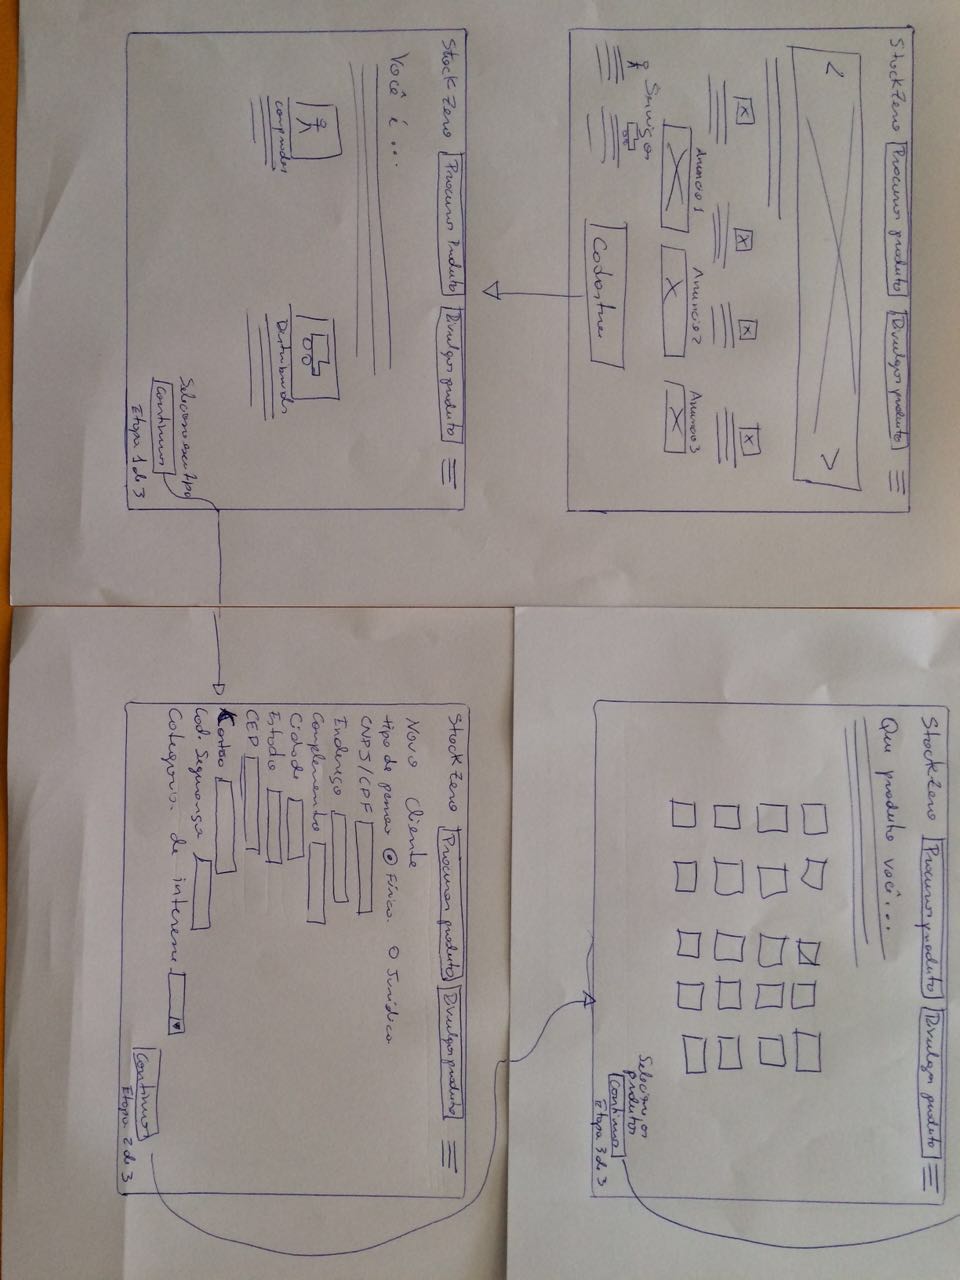 StockZero Procurar produto Divulgar produto
Serviços
Anuncio 1 Anuncio 2 Anuncio 3
Cadastrar
StockZero Procurar Produto Divulgar produto
Você é ...
comprador Distribuidor
Selecione seu tipo
Continuar
Etapa 1 de 3
StockZero Procurar produto Divulgar produto
Novo Cliente
tipo de pessoa Física. Jurídica
CNPJ/CPF
Endereço
Complemento
Cidade
Estado
CEP
Kartão
Cod. Segurança
Categoria. de interesse
Continuar
Etapa 2 de 3
StockZero Procurar produto Divulgar produto
Que produto você ...
Selecione os
produtos
Continuar
Etapa 3 de 3